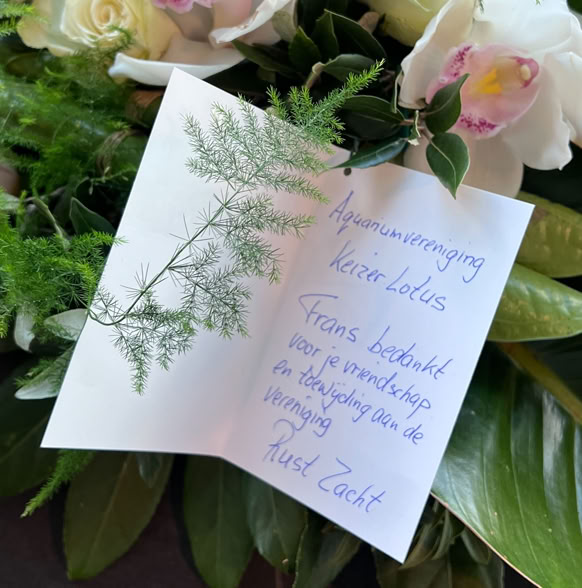 Aquariumvereniging
Keizer Lotus
Frans bedankt
voor je vriendschap
en toewijding aan de
vereniging
Rust Zacht